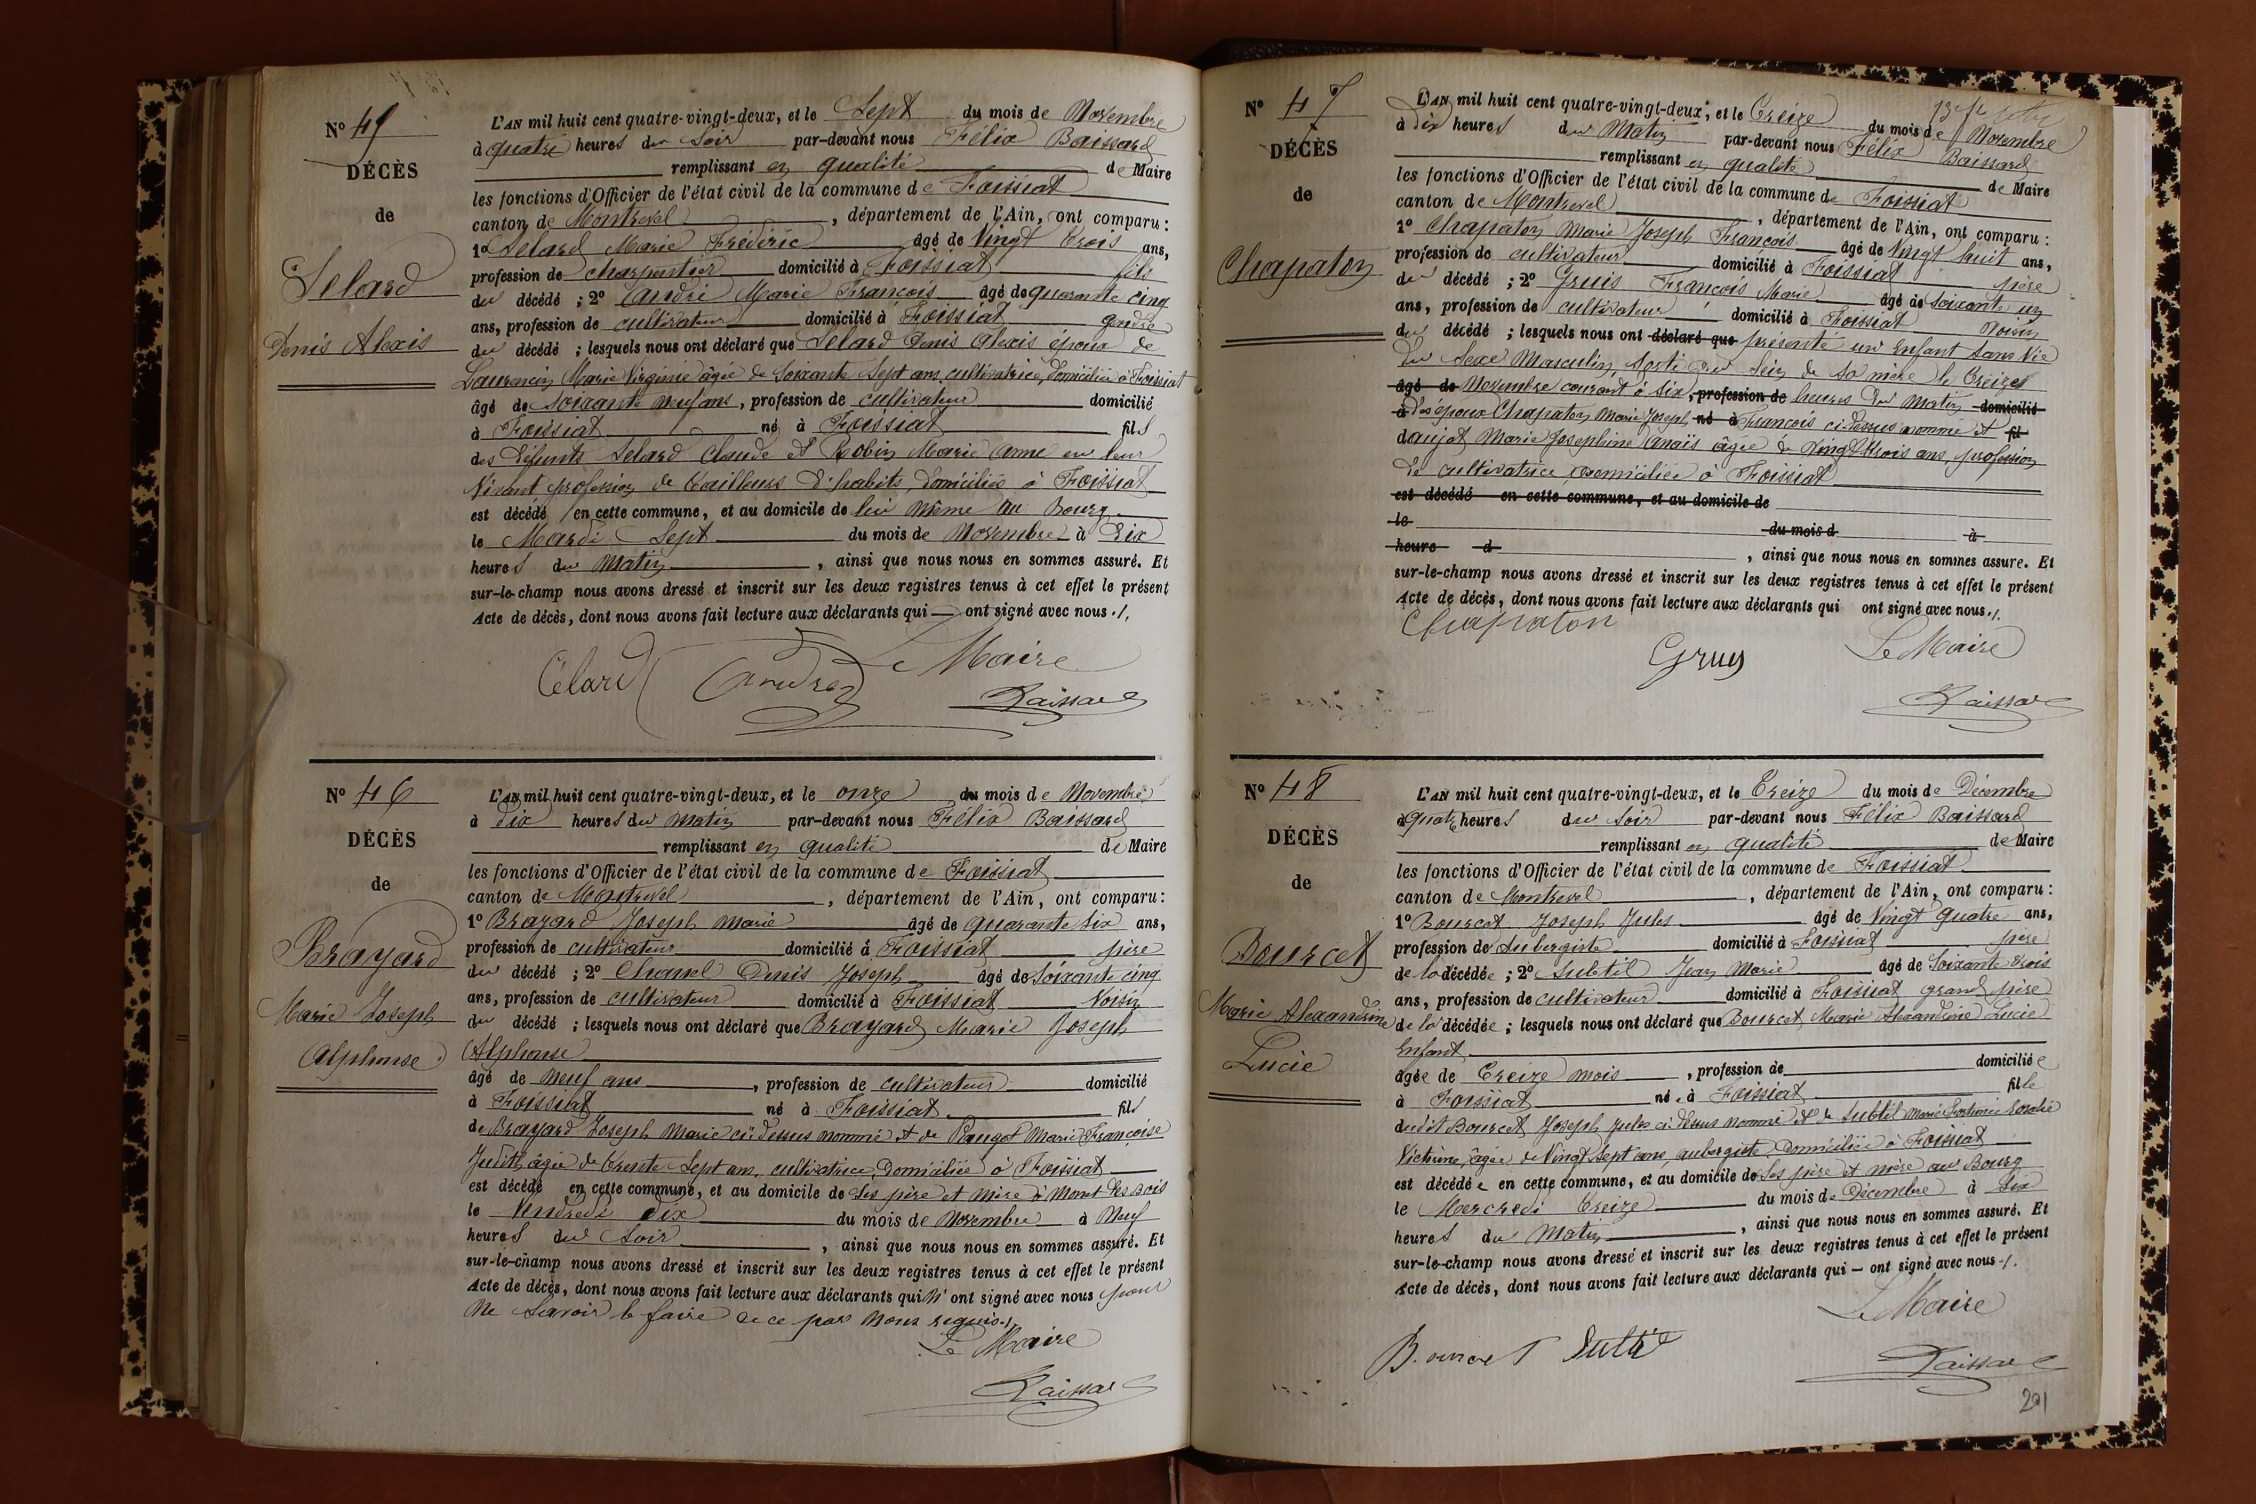 N° 45
DÉCÈS
de
Selard
Denis Alexis
L'AN mil huit cent quatre-vingt-deux, et le Sept du mois de Novembre
à quatre heures du Soir par-devant nous Félix Baissard
remplissant en qualité de Maire
les fonctions d'Officier de l'état civil de la commune de Foissiat
canton de Montrevel, département de l'Ain, ont comparu :
1° Selard Marie Frédéric âgé de Vingt trois ans,
profession de charpentier domicilié à Foissiat fils
du décédé ; 2° André Marie François âgé de quarante cinq
ans, profession de cultivateur domicilié à Foissiat gendre
du décédé ; lesquels nous ont déclaré que Selard Denis Alexis époux de
Laurencin Marie Virginie âgée de Soixante Sept ans, cultivatrice, domiciliée à Foissiat
âgé de soixante neuf ans, profession de cultivateur domicilié
à Foissiat né à Foissiat fils
des défunts Selard Claude et Robin Marie Anne en leur
Vivant profession de tailleurs d'habits, domiciliés à Foissiat
est décédé en cette commune, et au domicile de lui même au Bourg
le Mardi Sept du mois de Novembre à Dix
heures du Matin, ainsi que nous nous en sommes assuré. Et
sur-le-champ nous avons dressé et inscrit sur les deux registres tenus à cet effet le présent
Acte de décès, dont nous avons fait lecture aux déclarants qui — ont signé avec nous ./.
Célard André Le Maire
Baissard
N° 46
DÉCÈS
de
Brayard
Marie Joseph
Alphonse
L'AN mil huit cent quatre-vingt-deux, et le onze du mois de Novembre
à dix heures du matin par-devant nous Félix Baissard
remplissant en qualité de Maire
les fonctions d'Officier de l'état civil de la commune de Foissiat
canton de Montrevel, département de l'Ain, ont comparu :
1° Brayard Joseph Marie âgé de quarante six ans,
profession de cultivateur domicilié à Foissiat père
du décédé ; 2° Chanel Denis Joseph âgé de Soixante cinq
ans, profession de cultivateur domicilié à Foissiat Voisin
du décédé ; lesquels nous ont déclaré que Brayard Marie Joseph
Alphonse
âgé de neuf ans, profession de cultivateur domicilié
à Foissiat né à Foissiat fils
de Brayard Joseph Marie ci-dessus nommé et de Paugot Marie Françoise
Judith âgée de trente Sept ans, cultivatrice, domiciliée à Foissiat
est décédé en cette commune, et au domicile de Ses père et mère à Mont les Bois
le Vendredi dix du mois de Novembre à Neuf
heures du Soir, ainsi que nous nous en sommes assuré. Et
sur-le-champ nous avons dressé et inscrit sur les deux registres tenus à cet effet le présent
Acte de décès, dont nous avons fait lecture aux déclarants qui n'ont signé avec nous pour
ne Savoir le faire de ce par nous requis ./.
Le Maire
Baissard
N° 47
DÉCÈS
de
Chapaton
L'AN mil huit cent quatre-vingt-deux, et le Treize du mois de Novembre
à Dix heures du Matin par-devant nous Félix Baissard
remplissant en qualité de Maire
les fonctions d'Officier de l'état civil de la commune de Foissiat
canton de Montrevel, département de l'Ain, ont comparu :
1° Chapaton Marie Joseph François âgé de Vingt huit ans,
profession de cultivateur domicilié à Foissiat père
du décédé ; 2° Gruis François Marie âgé de Soixante un
ans, profession de cultivateur domicilié à Foissiat Voisin
du décédé ; lesquels nous ont déclaré que présenté un Enfant Sans Vie
du Sexe Masculin, Sorti du Sein de Sa mère le Treize
âgé de Novembre courant à Six, profession de heures du Matin domicilié
à des époux Chapaton Marie Joseph né à François ci-dessus nommé et fil
daujat Marie Josephine Anaïs âgée de Vingt trois ans, profession
de cultivatrice, domiciliée à Foissiat
est décédé en cette commune, et au domicile de
le du mois d à
heure d, ainsi que nous nous en sommes assuré. Et
sur-le-champ nous avons dressé et inscrit sur les deux registres tenus à cet effet le présent
Acte de décès, dont nous avons fait lecture aux déclarants qui ont signé avec nous ./.
Chapaton
Gruy Le Maire
Baissard
N° 48
DÉCÈS
de
Bourcet
Marie Alexandrine
Lucie
L'AN mil huit cent quatre-vingt-deux, et le Treize du mois de Décembre
à quatre heures du Soir par-devant nous Félix Baissard
remplissant en qualité de Maire
les fonctions d'Officier de l'état civil de la commune de Foissiat
canton de Montrevel, département de l'Ain, ont comparu :
1° Bourcet Joseph Jules âgé de Vingt quatre ans,
profession de Aubergiste domicilié à Foissiat père
de la décédée ; 2° Subtil Jean Marie âgé de Soixante trois
ans, profession de cultivateur domicilié à Foissiat grand père
de la décédée ; lesquels nous ont déclaré que Bourcet Marie Alexandrine Lucie
Enfant
âgée de Treize mois, profession de domiciliée
à Foissiat née à Foissiat fille
dudit Bourcet Joseph Jules ci-dessus nommé et de Subtil Marie Rosalie
Victorine, âgée de Vingt Sept ans, aubergiste, Domiciliée à Foissiat
est décédée en cette commune, et au domicile de Ses père et mère au Bourg
le Mercredi Treize du mois de Décembre à Six
heures du Matin, ainsi que nous nous en sommes assuré. Et
sur-le-champ nous avons dressé et inscrit sur les deux registres tenus à cet effet le présent
Acte de décès, dont nous avons fait lecture aux déclarants qui — ont signé avec nous ./.
Le Maire
Bourcet Subtil
Baissard
291